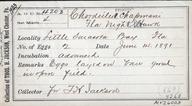 Collection of THOS. H. JACKSON, West Chester, Pa.
No. 4203
4
Chordeiles Chapmani
Fla Night Hawk
Locality Little Sarasota Bay Fla
No. of Eggs 2 Date June 14. 1891
Incubation Advanced
Remarks Eggs laid on bare ground
in open field.
Collector for T H Jackson